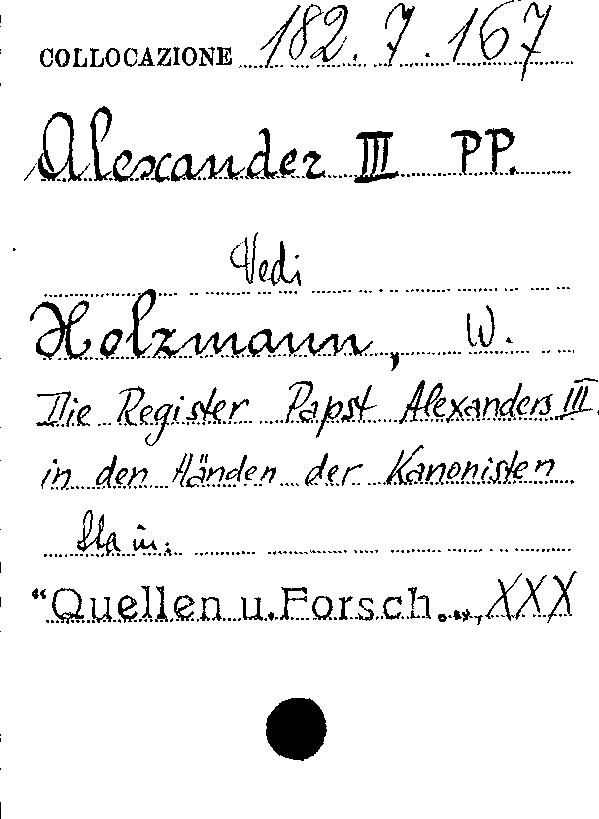 COLLOCAZIONE 182.7.167
Alexander III PP.
Vedi
Holzmann, W.
Die Register Papst Alexanders III.
in den Händen der Kanonisten
Sta in:
"Quellen u. Forsch., XXX